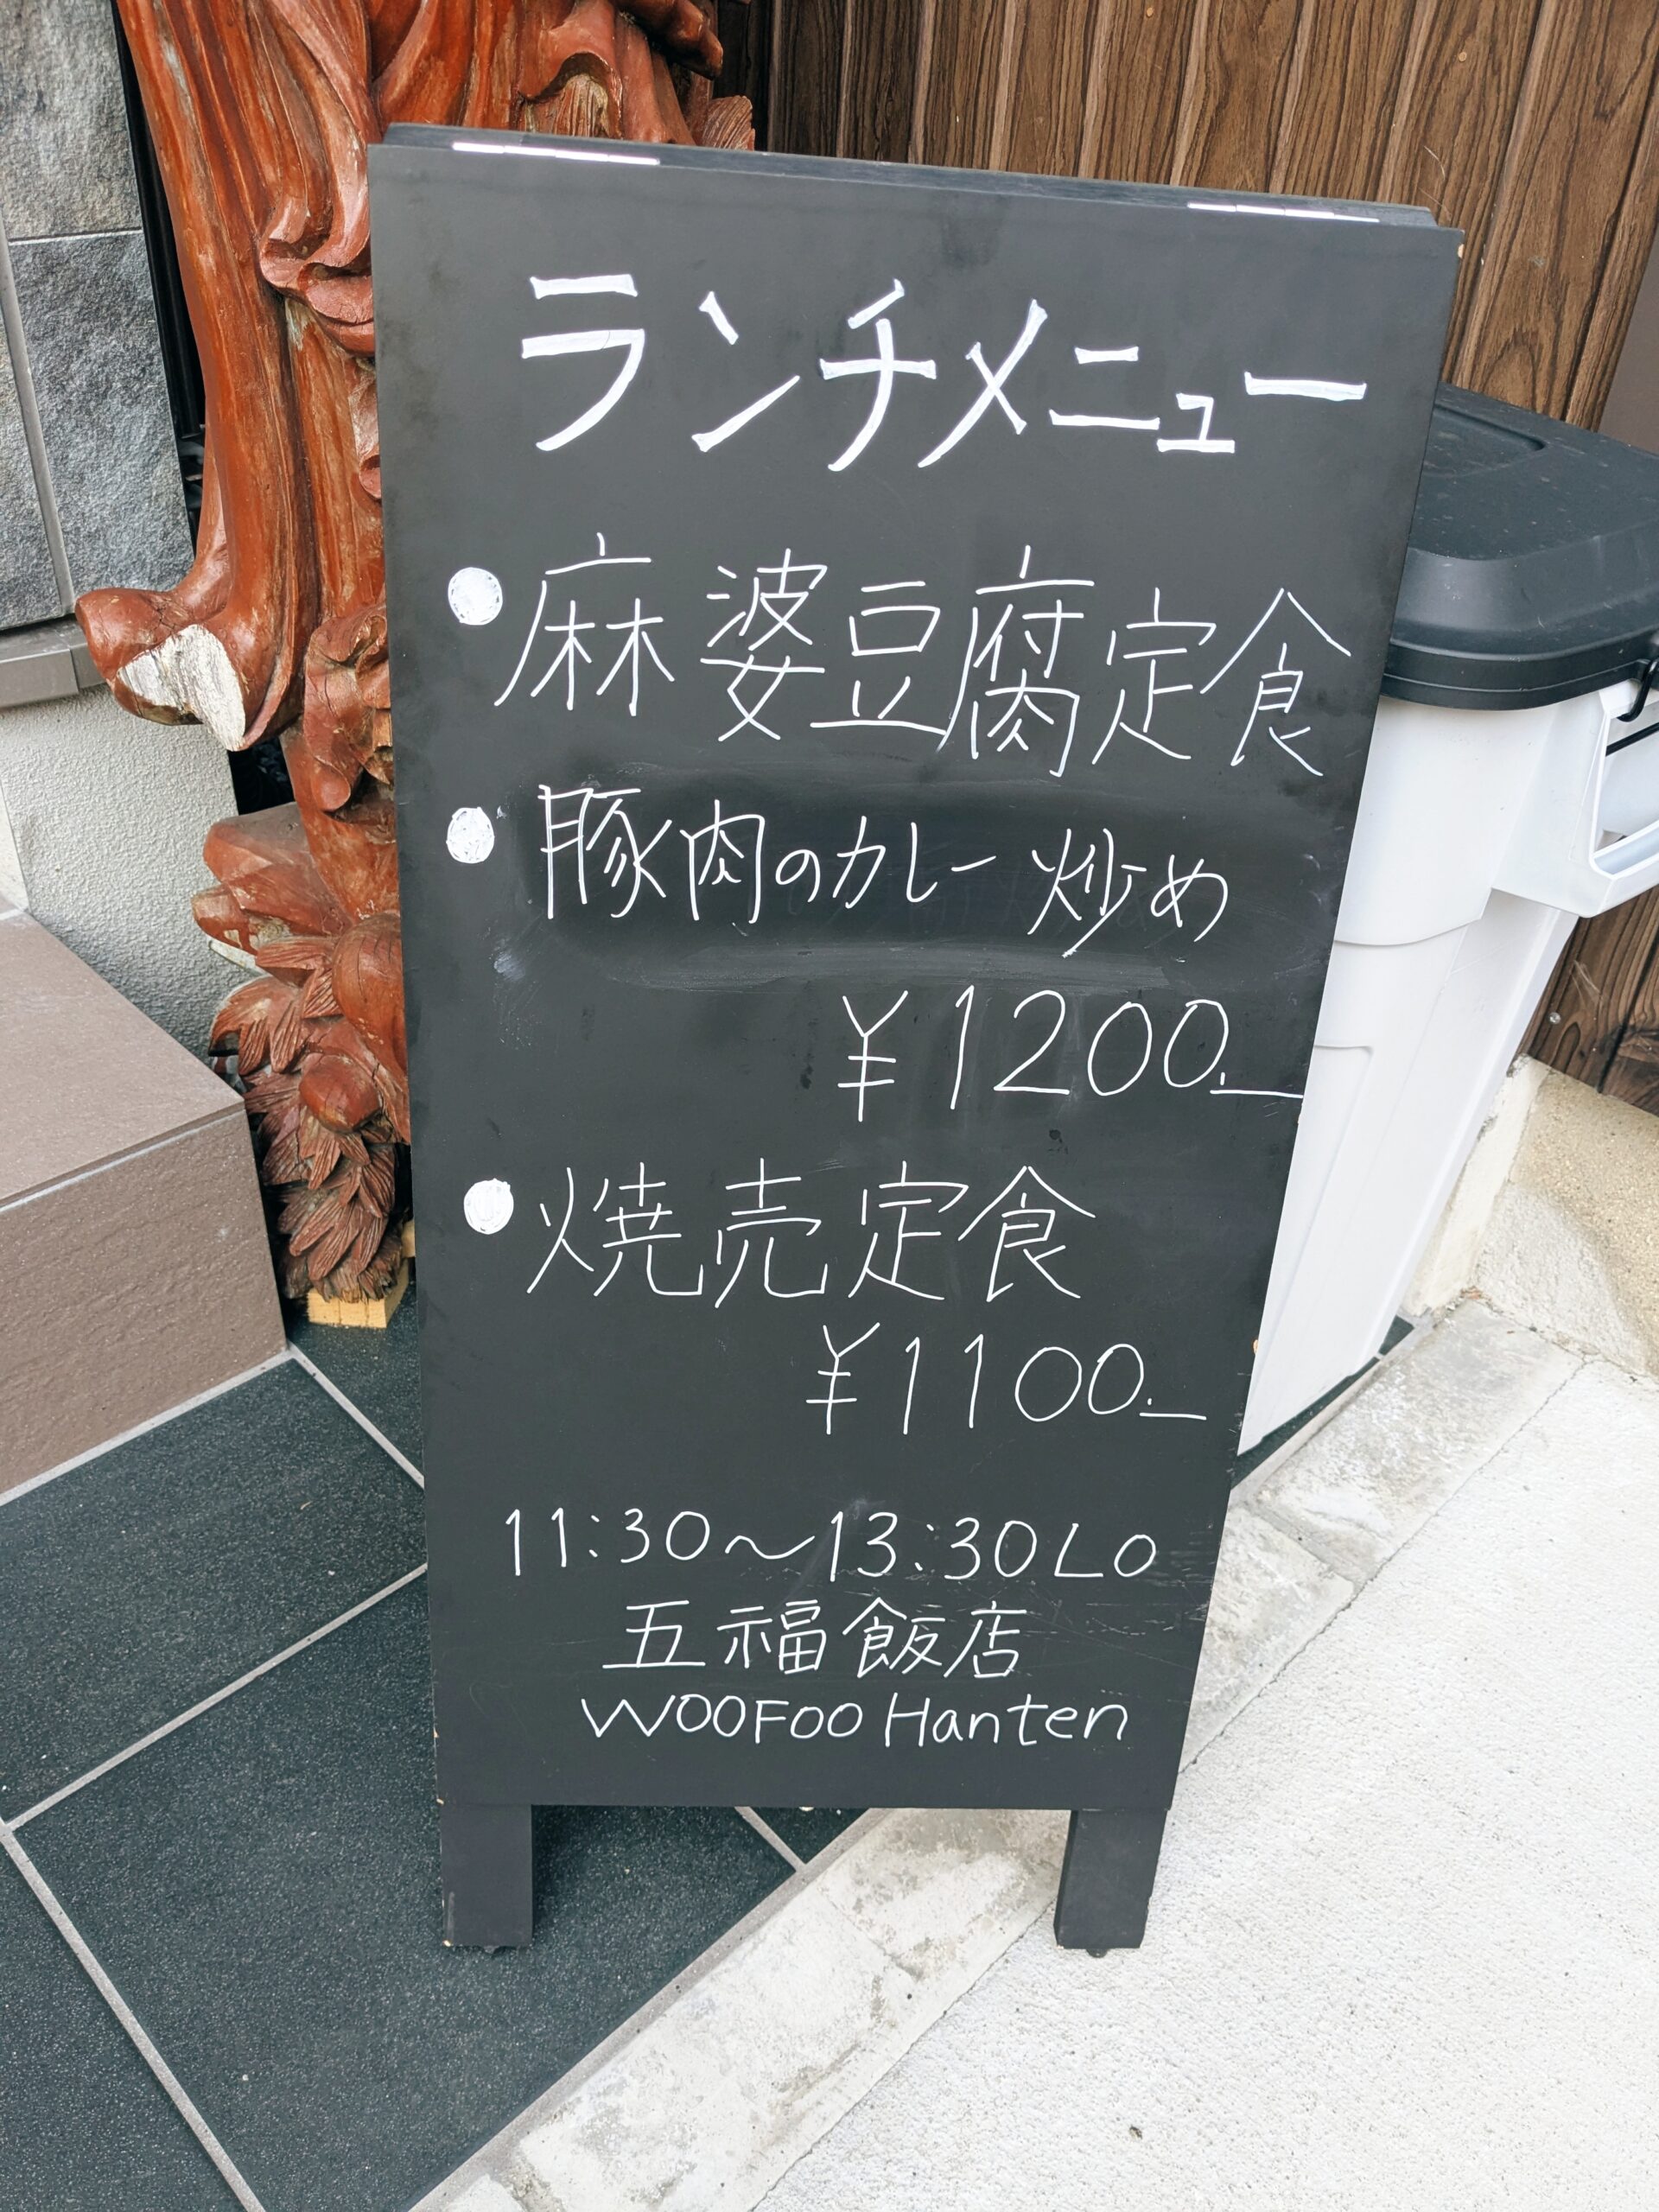 ランチメニュー
●麻婆豆腐定食
●豚肉のカレー炒め
¥1200.—
●焼売定食
¥1100.—
11:30～13:30LO
五福飯店
WOOFOO Hanten